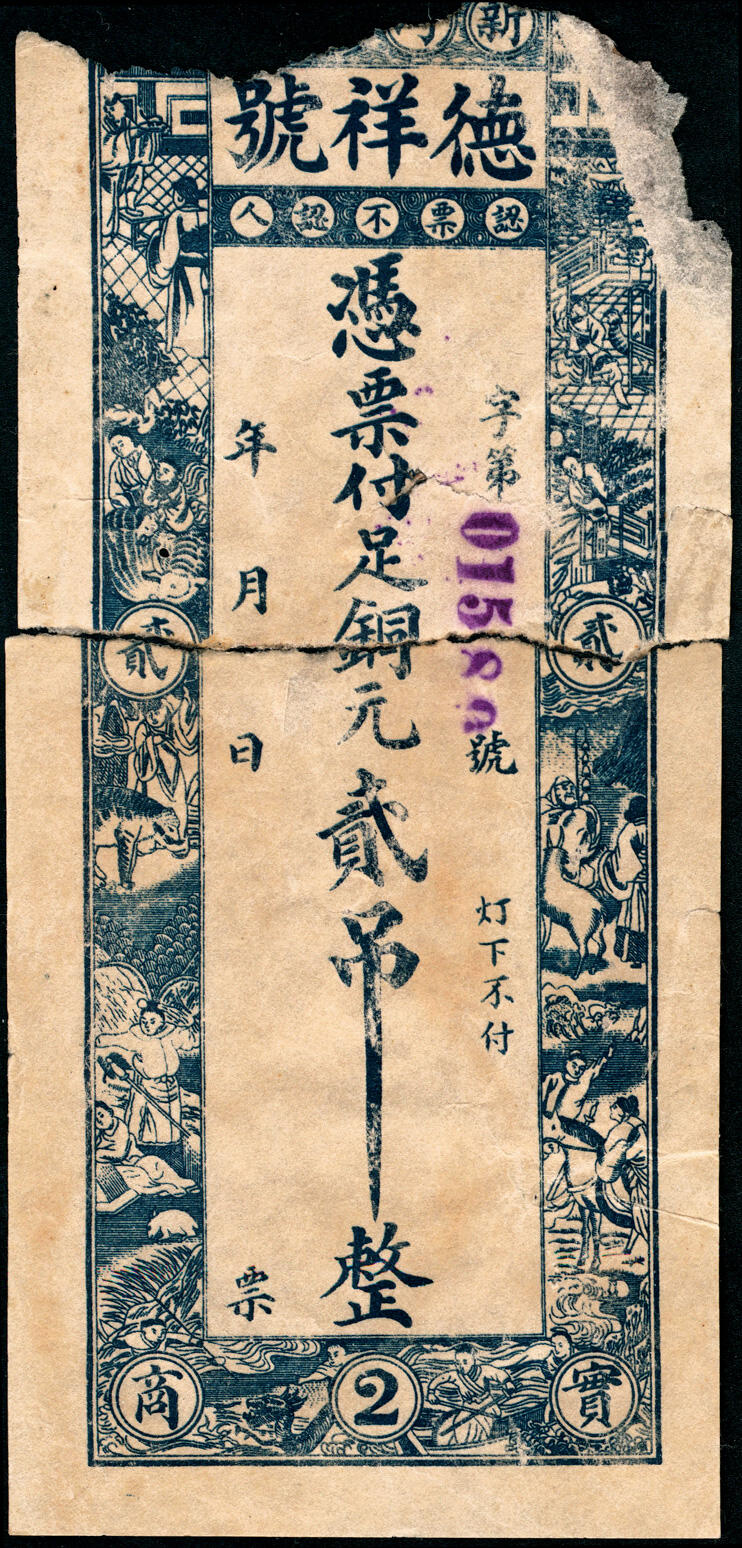 新
德祥號
認票不認人
字第0158號
灯下不付
憑票付足銅元貳吊整
年月日票
貳
貳
實
2
商